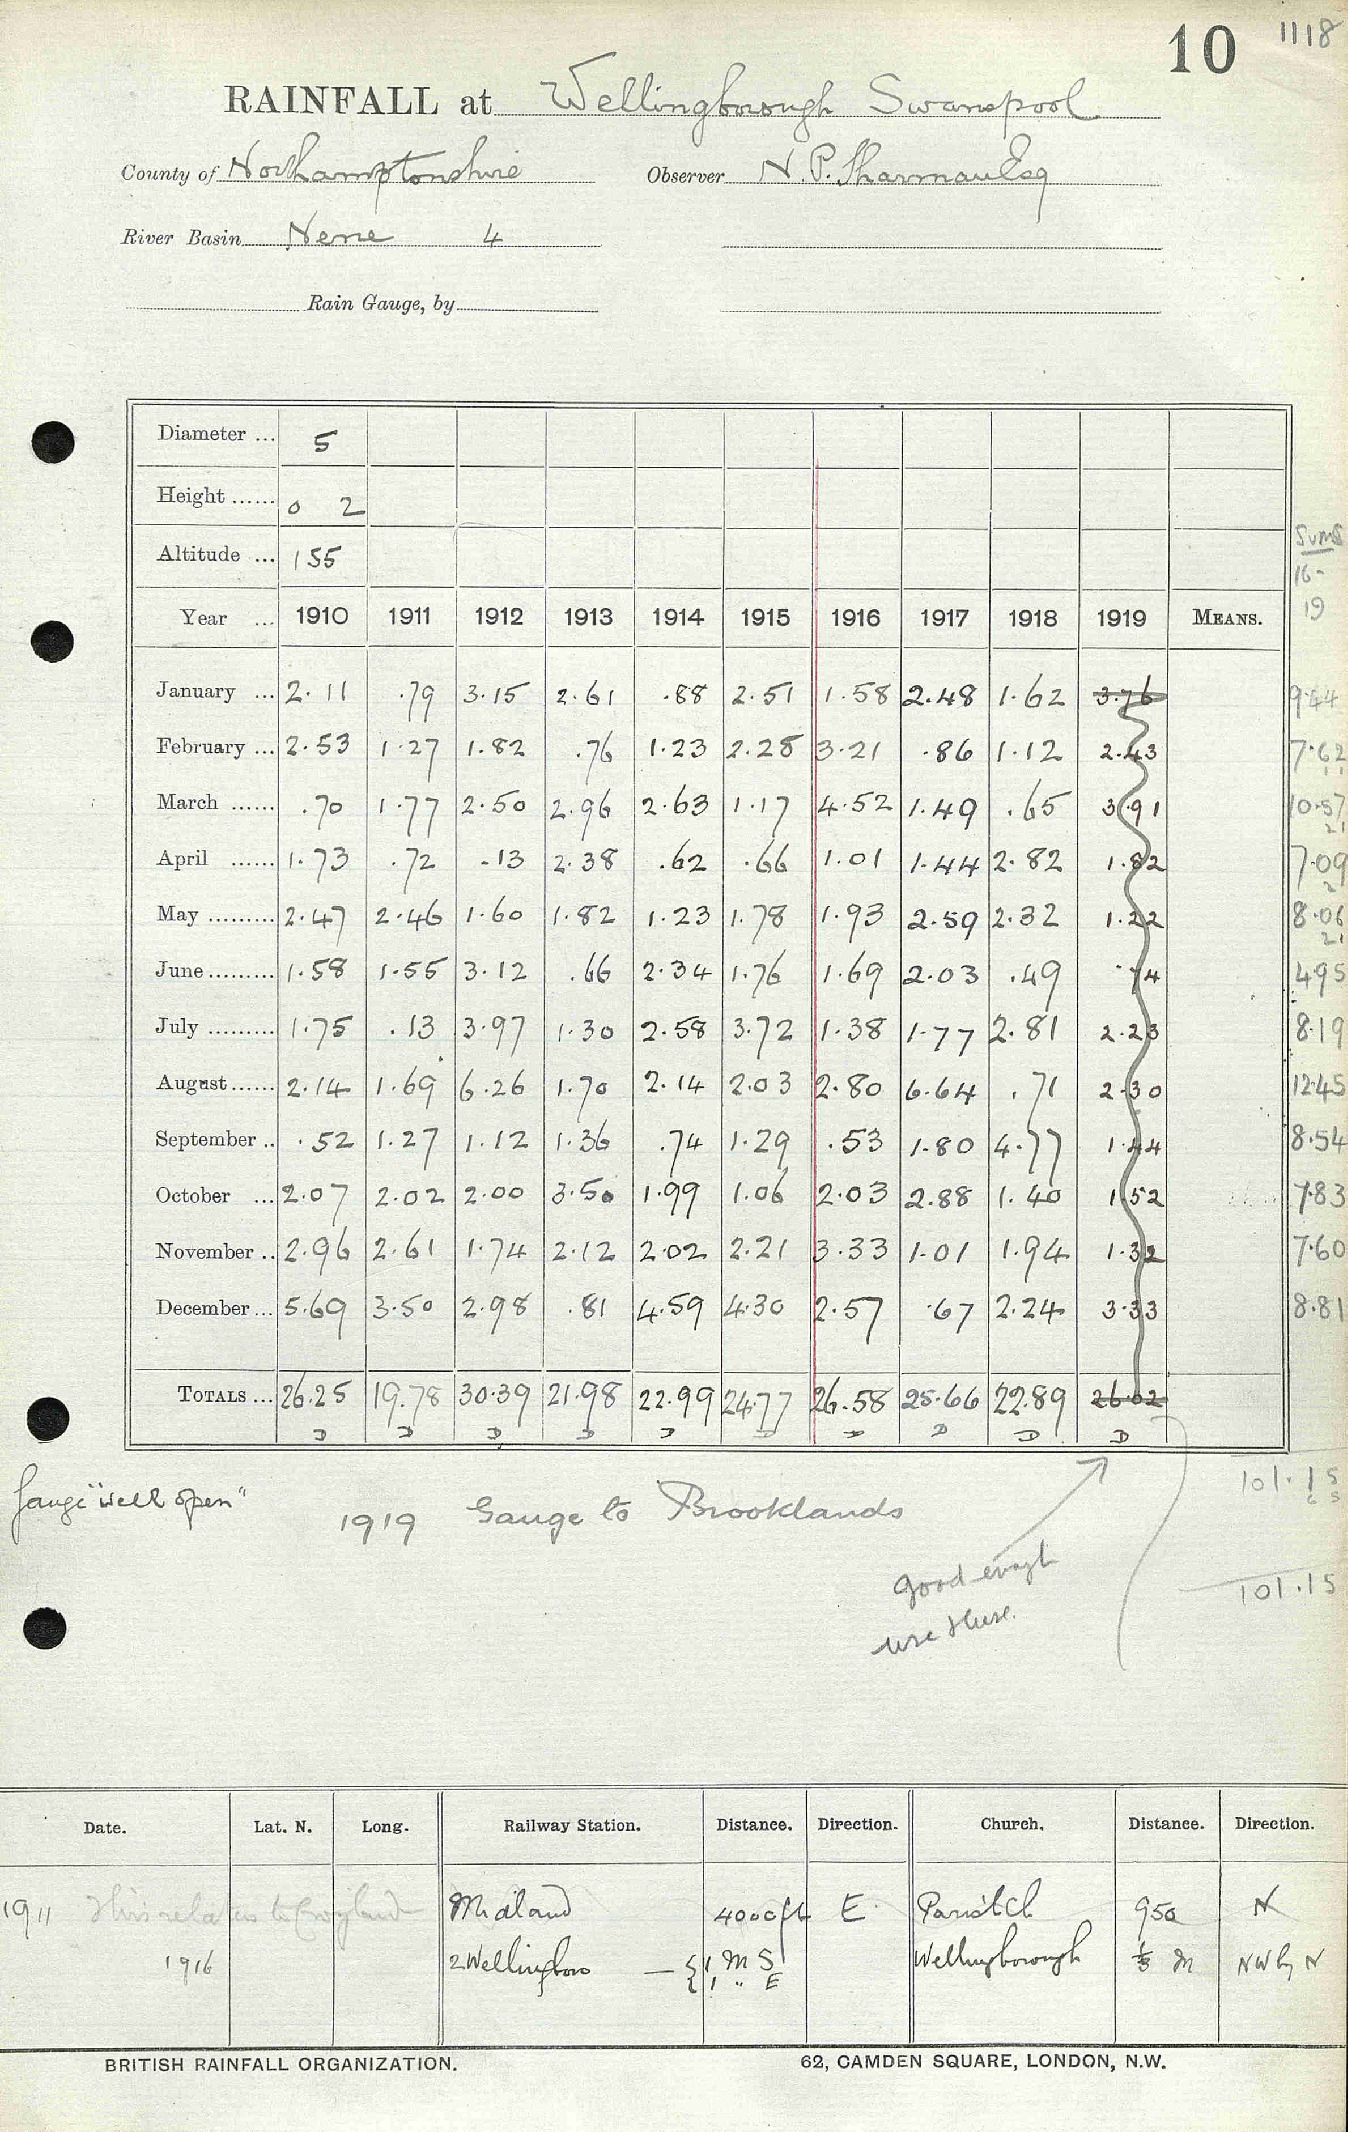 10 1118
RAINFALL at Wellingborough Swanspool
County of Northamptonshire Observer N. P. Sharman Esq
River Basin Nene 4
Rain Gauge, by
Diameter ... 5
Height ...... 0 2
Altitude ... 155
Sums
16-
19
Year ... 1910 1911 1912 1913 1914 1915 1916 1917 1918 1919 MEANS.
January ... 2.11 .79 3.15 2.61 .88 2.51 1.58 2.48 1.62 3.76 9.44
February ... 2.53 1.27 1.82 .76 1.23 2.28 3.21 .86 1.12 2.43 7.62
March ...... .70 1.77 2.50 2.96 2.63 1.17 4.52 1.49 .65 3.91 10.57
April ...... 1.73 .72 .13 2.38 .62 .66 1.01 1.44 2.82 1.82 7.09
May ......... 2.47 2.46 1.60 1.82 1.23 1.78 1.93 2.59 2.32 1.22 8.06
June ......... 1.58 1.55 3.12 .66 2.34 1.76 1.69 2.03 .49 .74 4.95
July ......... 1.75 .13 3.97 1.30 2.58 3.72 1.38 1.77 2.81 2.23 8.19
August ...... 2.14 1.69 6.26 1.70 2.14 2.03 2.80 6.64 .71 2.30 12.45
September .. .52 1.27 1.12 1.36 .74 1.29 .53 1.80 4.77 1.44 8.54
October ... 2.07 2.02 2.00 3.50 1.99 1.06 2.03 2.88 1.40 1.52 7.83
November .. 2.96 2.61 1.74 2.12 2.02 2.21 3.33 1.01 1.94 1.32 7.60
December ... 5.69 3.50 2.98 .81 4.59 4.30 2.57 .67 2.24 3.33 8.81
TOTALS ... 26.25 19.78 30.39 21.98 22.99 24.77 26.58 25.66 22.89 26.02
D D D D D D D D D D
Gauge "well open"
1919 Gauge to Brooklands
101.15
good enough
use these.
101.15
Date. Lat. N. Long. Railway Station. Distance. Direction. Church. Distance. Direction.
1911 This relates to Midland 4000 ft E. Parish Ch 950 N
1916 2 Wellingboro — { 1 M S Wellingborough ⅓ m NW by N
1 " E
BRITISH RAINFALL ORGANIZATION. 62, CAMDEN SQUARE, LONDON, N.W.